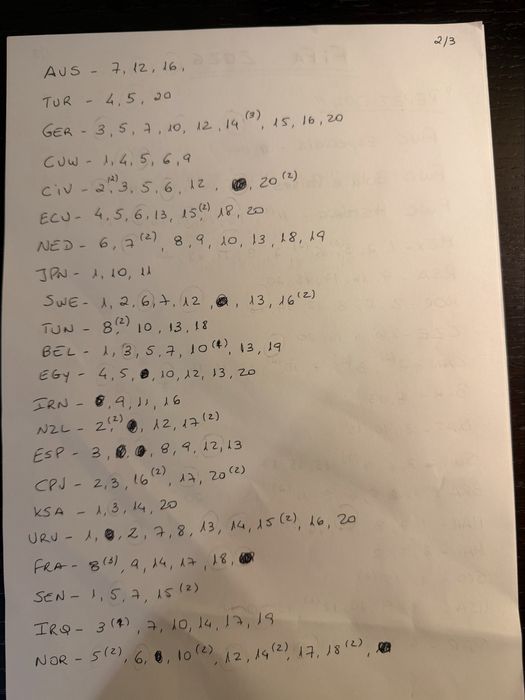 2/3
AUS - 7, 12, 16,
TUR - 4, 5, 20
GER - 3, 5, 7, 10, 12, 14(3), 15, 16, 20
CUW - 1, 4, 5, 6, 9
CIV - 2(2), 3, 5, 6, 12, 20(2)
ECU - 4, 5, 6, 13, 15(2), 18, 20
NED - 6, 7(2), 8, 9, 10, 13, 18, 19
JPN - 1, 10, 11
SWE - 1, 2, 6, 7, 12, 13, 16(2)
TUN - 8(2), 10, 13, 18
BEL - 1, 3, 5, 7, 10(4), 13, 19
EGY - 4, 5, 10, 12, 13, 20
IRN - 9, 11, 16
NZL - 2(2), 12, 17(2)
ESP - 3, 8, 9, 12, 13
CPV - 2, 3, 16(2), 17, 20(2)
KSA - 1, 3, 14, 20
URU - 1, 2, 7, 8, 13, 14, 15(2), 16, 20
FRA - 8(3), 9, 14, 17, 18,
SEN - 1, 5, 7, 15(2)
IRQ - 3(4), 7, 10, 14, 17, 19
NOR - 5(2), 6, 10(2), 12, 14(2), 17, 18(2),